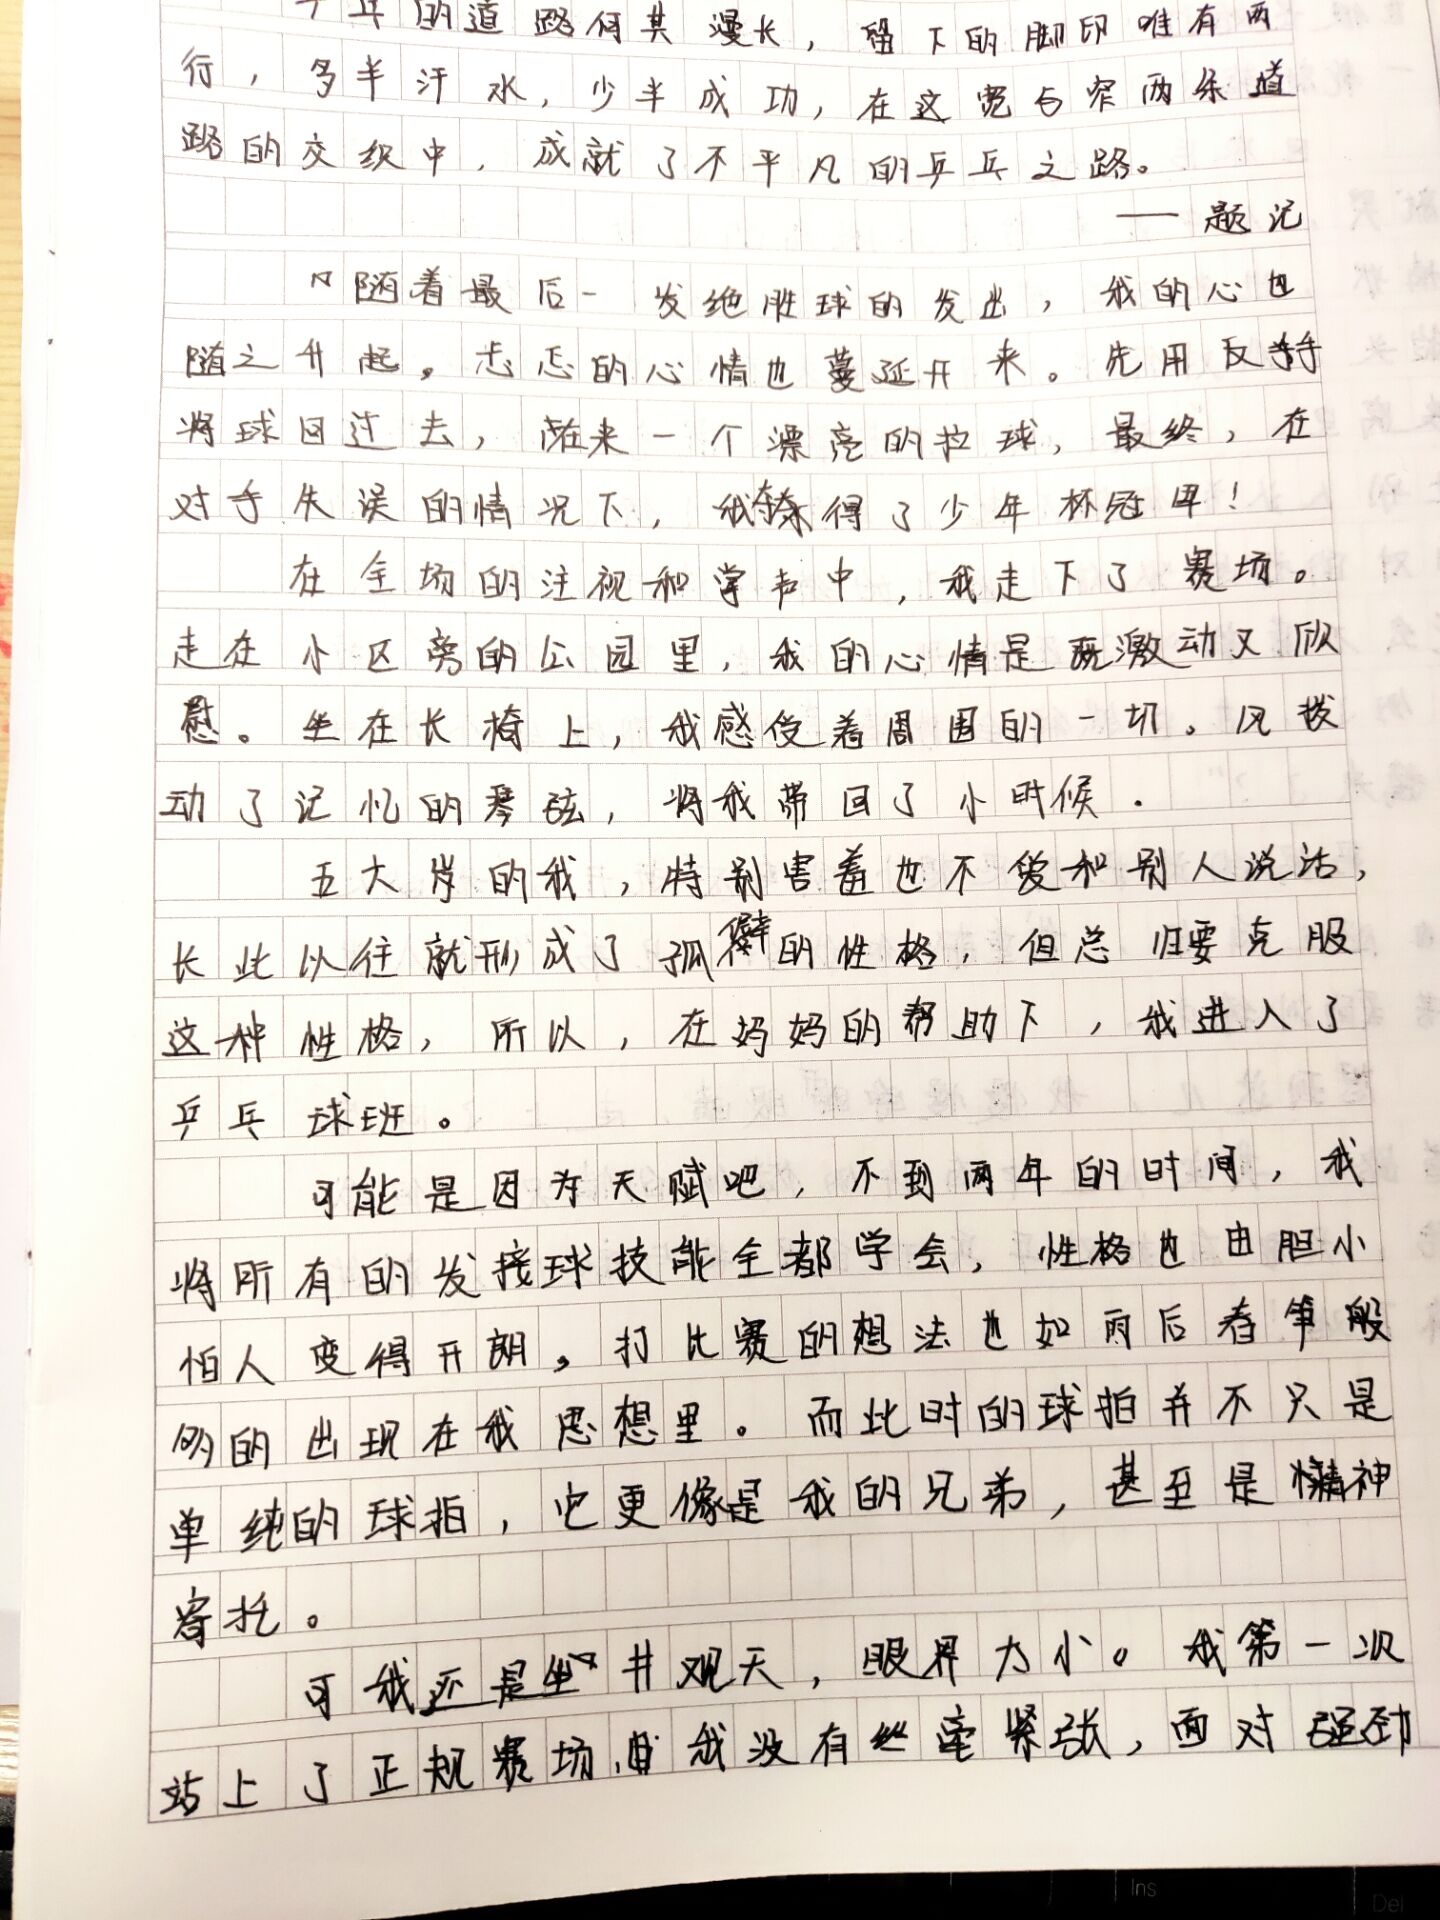 年的道路何其漫长，留下的脚印唯有两
行，多半汗水，少半成功，在这宽与窄两条道
路的交织中，成就了不平凡的乒乓之路。
——题记
随着最后一发绝胜球的发出，我的心也
随之升起。忐忑的心情也蔓延开来。先用反手
将球回过去，在来一个漂亮的拉球，最终，在
对手失误的情况下，我夺得了少年杯冠军！
在全场的注视和掌声中，我走下了赛场。
走在小区旁的公园里，我的心情是既激动又欣
慰。坐在长椅上，我感受着周围的一切。风拨
动了记忆的琴弦，将我带回了小时候．
五六岁的我，特别害羞也不爱和别人说话，
长此以往就形成了孤僻的性格，但总归要克服
这种性格，所以，在妈妈的帮助下，我进入了
乒乓球班。
可能是因为天赋吧，不到两年的时间，我
将所有的发接球技能全都学会，性格也由胆小
怕人变得开朗。打比赛的想法也如雨后春笋般
的出现在我思想里。而此时的球拍并不只是
单纯的球拍，它更像是我的兄弟，甚至是精神
寄托。
可我还是坐井观天，眼界太小。我第一次
站上了正规赛场，我没有丝毫紧张，面对强劲
Ins
Del